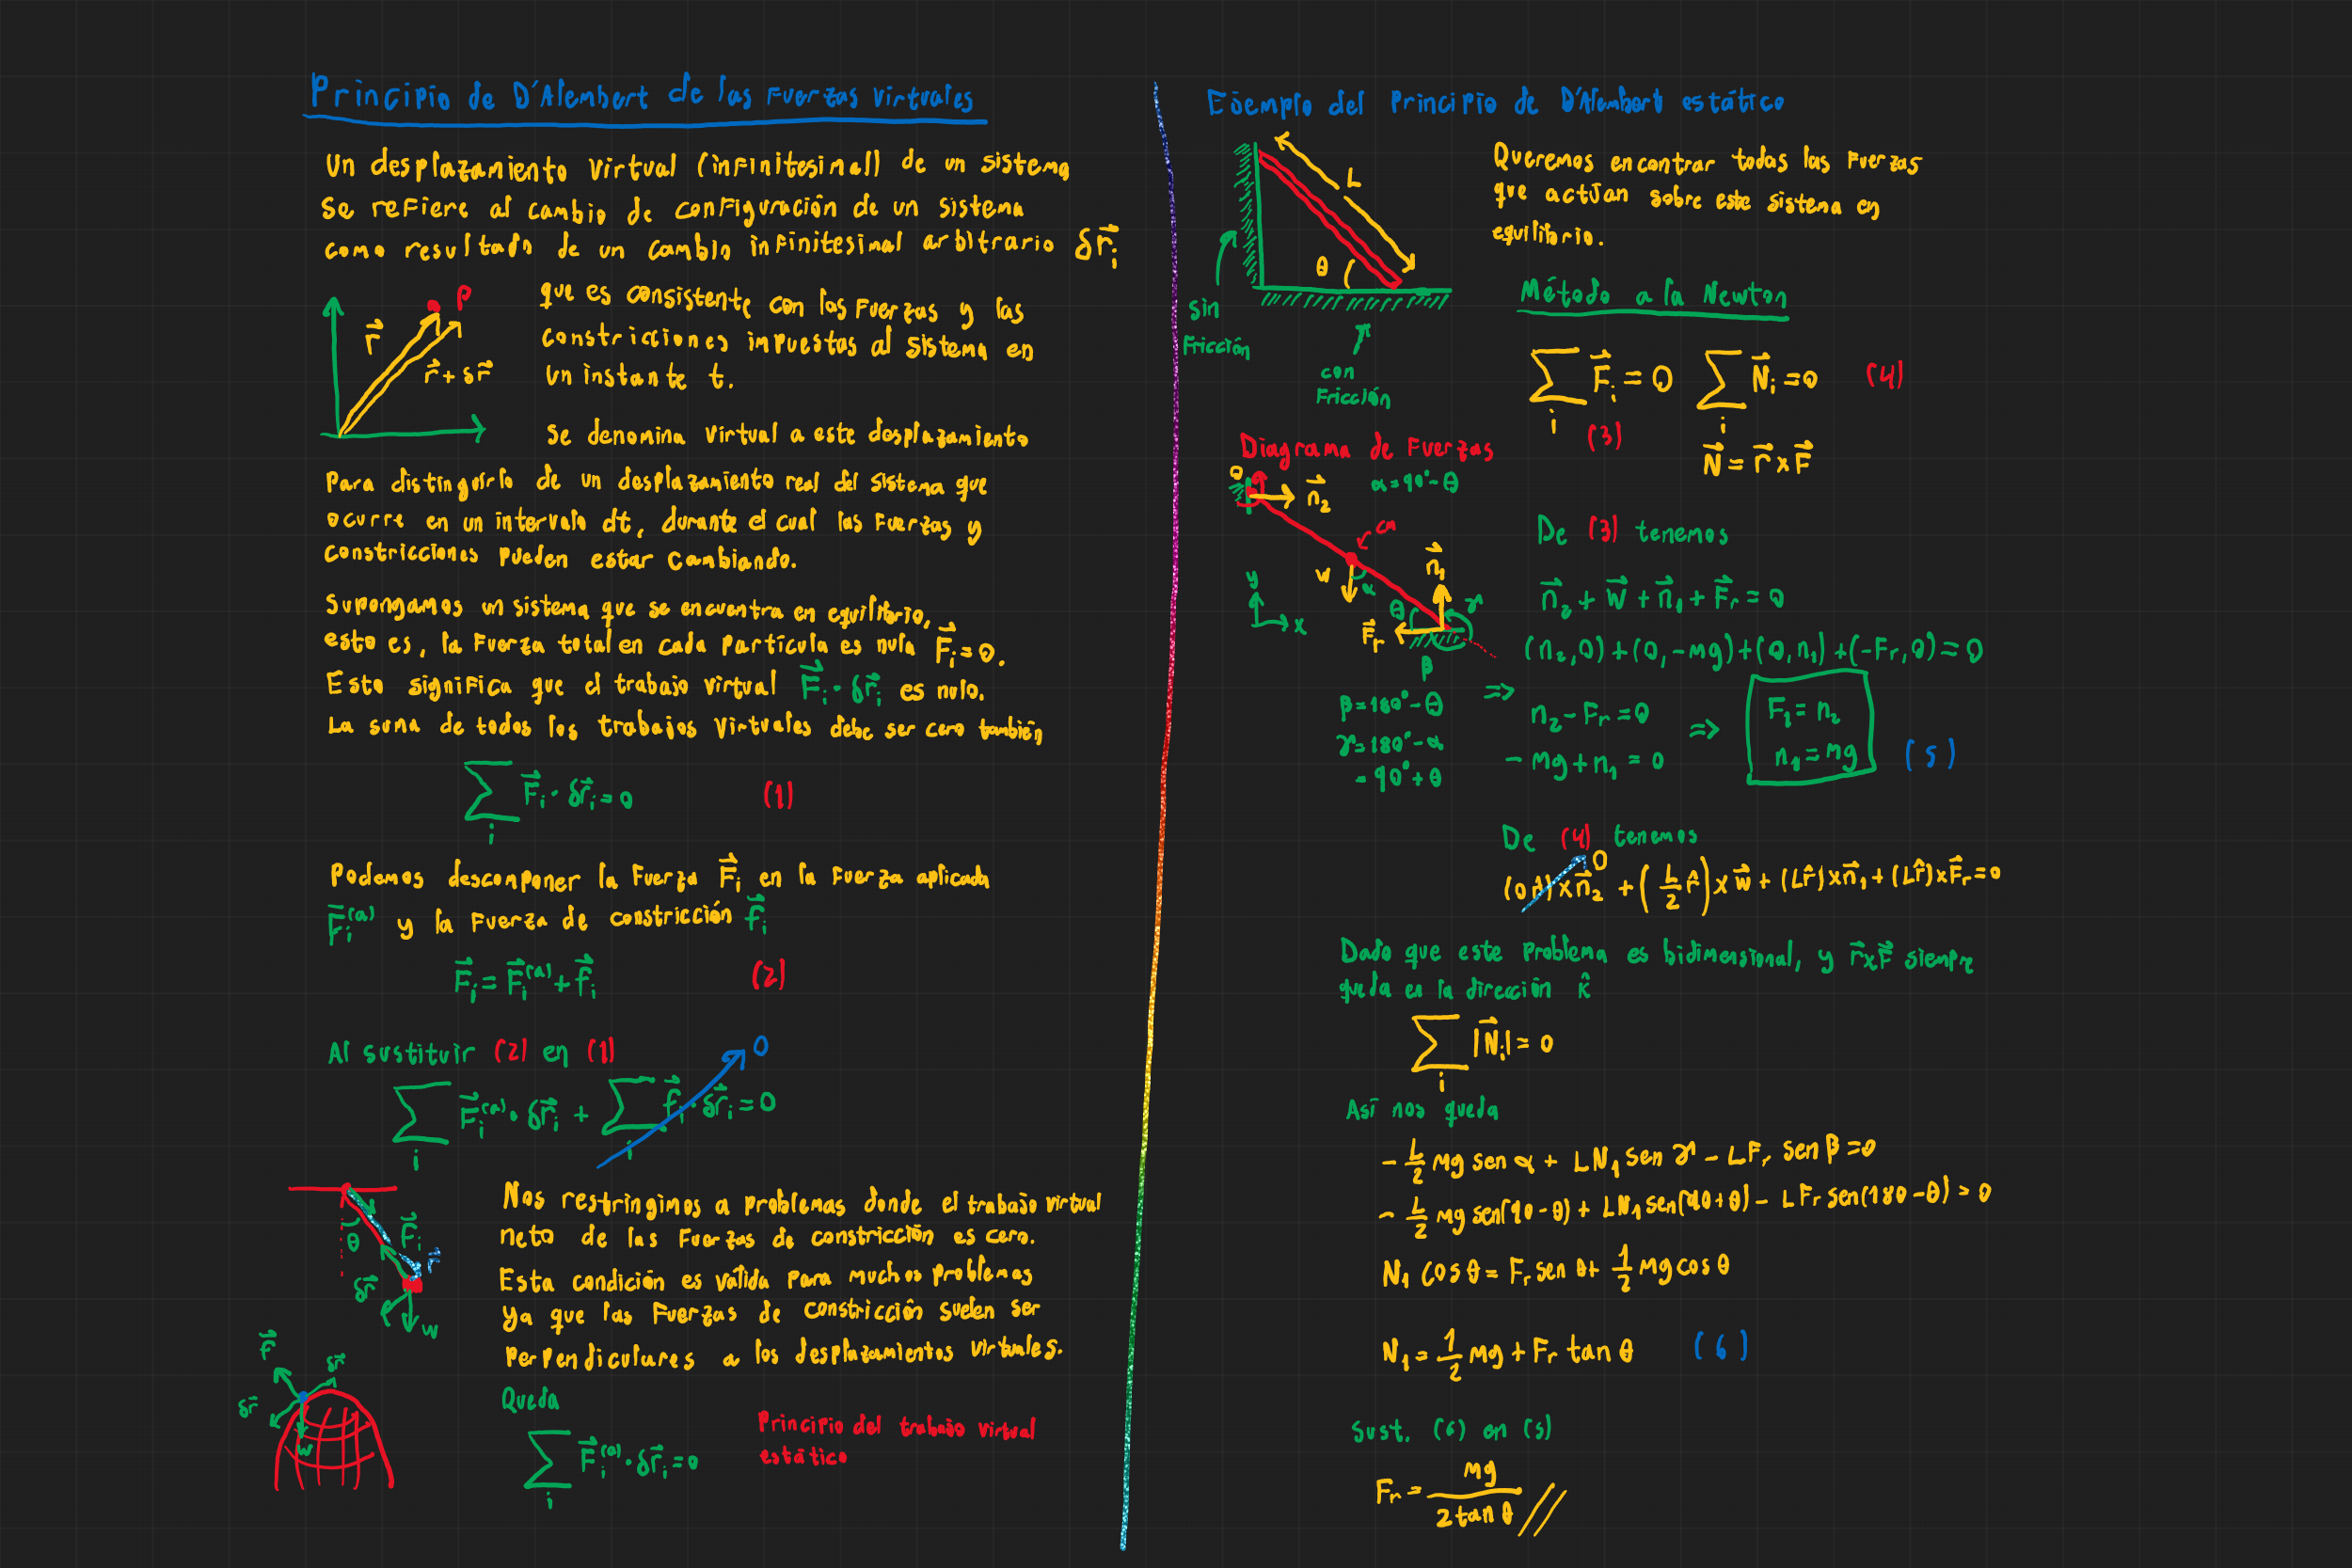 Principio de D'Alembert de las Fuerzas Virtuales
Un desplazamiento virtual (infinitesimal) de un sistema
se refiere al cambio de configuración de un sistema
como resultado de un cambio infinitesimal arbitrario δr⃗ᵢ
que es consistente con las fuerzas y las
constricciones impuestas al sistema en
un instante t.
P
r⃗
r⃗ + δr⃗
Se denomina virtual a este desplazamiento
Para distinguirlo de un desplazamiento real del sistema que
ocurre en un intervalo dt, durante el cual las fuerzas y
constricciones pueden estar cambiando.
Supongamos un sistema que se encuentra en equilibrio,
esto es, la fuerza total en cada partícula es nula F⃗ᵢ = 0.
Esto significa que el trabajo virtual F⃗ᵢ · δr⃗ᵢ es nulo.
La suma de todos los trabajos virtuales debe ser cero también
∑ᵢ F⃗ᵢ · δr⃗ᵢ = 0 (1)
Podemos descomponer la fuerza F⃗ᵢ en la fuerza aplicada
F⃗ᵢ⁽ᵃ⁾ y la fuerza de constricción f⃗ᵢ
F⃗ᵢ = F⃗ᵢ⁽ᵃ⁾ + f⃗ᵢ (2)
Al sustituir (2) en (1)
∑ᵢ F⃗ᵢ⁽ᵃ⁾ · δr⃗ᵢ + ∑ᵢ f⃗ᵢ · δr⃗ᵢ = 0
0
Nos restringimos a problemas donde el trabajo virtual
neto de las fuerzas de constricción es cero.
Esta condición es válida para muchos problemas
ya que las fuerzas de constricción suelen ser
perpendiculares a los desplazamientos virtuales.
θ
f⃗ᵢ
r⃗
δr⃗
w
f⃗
δr⃗
δr⃗
w
Queda
∑ᵢ F⃗ᵢ⁽ᵃ⁾ · δr⃗ᵢ = 0
Principio del trabajo virtual
estático
Ejemplo del Principio de D'Alembert estático
L
θ
sin
fricción
con
fricción
Queremos encontrar todas las fuerzas
que actúan sobre este sistema en
equilibrio.
Método a la Newton
∑ᵢ F⃗ᵢ = 0 ∑ᵢ N⃗ᵢ = 0 (4)
(3)
N⃗ = r⃗ × F⃗
Diagrama de Fuerzas
α = 90° - θ
O
n⃗₂
CM
w
α
n⃗₁
θ
γ
F⃗r
β
y
x
β = 180° - θ
γ = 180° - α
= 90° + θ
De (3) tenemos
n⃗₂ + w⃗ + n⃗₁ + F⃗r = 0
(n₂, 0) + (0, -mg) + (0, n₁) + (-Fr, 0) = 0
⇒ n₂ - Fr = 0
- mg + n₁ = 0
⇒ F₁ = n₂
n₁ = mg (5)
De (4) tenemos
0
(0r̂) × n⃗₂ + (L/2 r̂) × w⃗ + (Lr̂) × n⃗₁ + (Lr̂) × F⃗r = 0
Dado que este problema es bidimensional, y r⃗ × F⃗ siempre
queda en la dirección k̂
∑ᵢ |N⃗ᵢ| = 0
Así nos queda
- L/2 mg sen α + LN₁ sen γ - LFr sen β = 0
- L/2 mg sen(90 - θ) + LN₁ sen(90 + θ) - LFr sen(180 - θ) = 0
N₁ cos θ = Fr sen θ + 1/2 mg cos θ
N₁ = 1/2 mg + Fr tan θ (6)
Sust. (6) en (5)
Fr = mg / 2 tan θ //